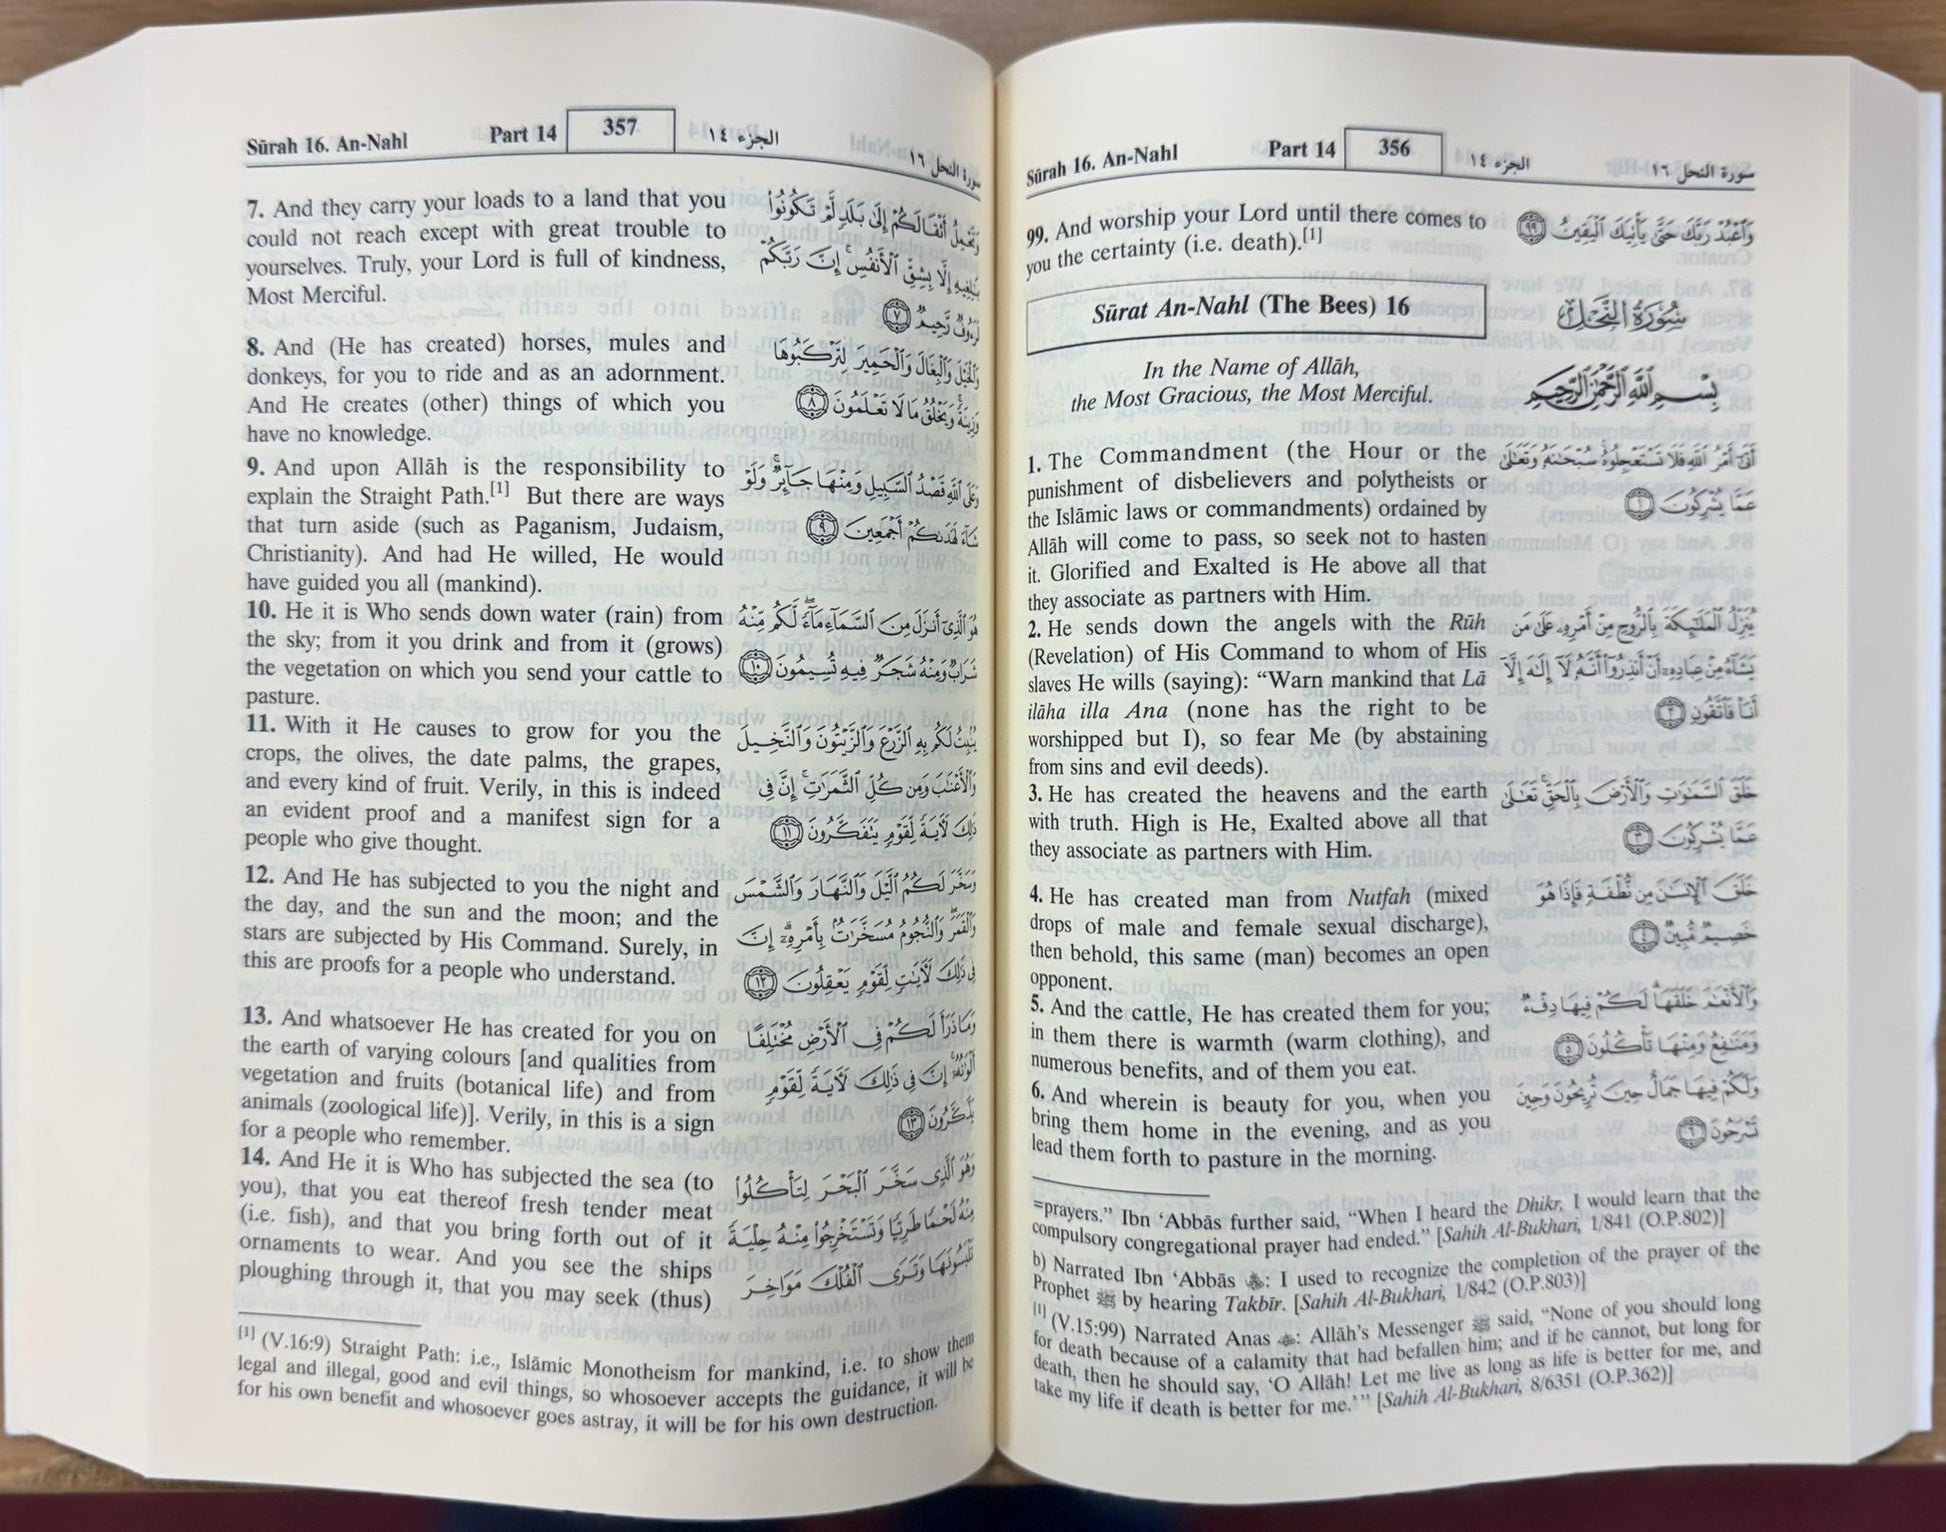 Sūrah 16. An-Nahl Part 14 356 الجزء ١٤ سورة النحل ١٦
99. And worship your Lord until there comes to
you the certainty (i.e. death).[1]
Sūrat An-Nahl (The Bees) 16
In the Name of Allāh,
the Most Gracious, the Most Merciful.
1. The Commandment (the Hour or the
punishment of disbelievers and polytheists or
the Islāmic laws or commandments) ordained by
Allāh will come to pass, so seek not to hasten
it. Glorified and Exalted is He above all that
they associate as partners with Him.
2. He sends down the angels with the Rūh
(Revelation) of His Command to whom of His
slaves He wills (saying): “Warn mankind that Lā
ilāha illa Ana (none has the right to be
worshipped but I), so fear Me (by abstaining
from sins and evil deeds).
3. He has created the heavens and the earth
with truth. High is He, Exalted above all that
they associate as partners with Him.
4. He has created man from Nutfah (mixed
drops of male and female sexual discharge),
then behold, this same (man) becomes an open
opponent.
5. And the cattle, He has created them for you;
in them there is warmth (warm clothing), and
numerous benefits, and of them you eat.
6. And wherein is beauty for you, when you
bring them home in the evening, and as you
lead them forth to pasture in the morning.
وَٱعْبُدْ رَبَّكَ حَتَّىٰ يَأْتِيَكَ ٱلْيَقِينُ ٩٩
سُورَةُ النَّحْلِ
بِسْمِ اللَّهِ الرَّحْمَٰنِ الرَّحِيمِ
أَتَىٰٓ أَمْرُ ٱللَّهِ فَلَا تَسْتَعْجِلُوهُ ۚ سُبْحَٰنَهُۥ وَتَعَٰلَىٰ
عَمَّا يُشْرِكُونَ ١
يُنَزِّلُ ٱلْمَلَٰٓئِكَةَ بِٱلرُّوحِ مِنْ أَمْرِهِۦ عَلَىٰ مَن
يَشَآءُ مِنْ عِبَادِهِۦٓ أَنْ أَنذِرُوٓا۟ أَنَّهُۥ لَآ إِلَٰهَ إِلَّآ
أَنَا۠ فَٱتَّقُونِ ٢
خَلَقَ ٱلسَّمَٰوَٰتِ وَٱلْأَرْضَ بِٱلْحَقِّ ۚ تَعَٰلَىٰ
عَمَّا يُشْرِكُونَ ٣
خَلَقَ ٱلْإِنسَٰنَ مِن نُّطْفَةٍ فَإِذَا هُوَ
خَصِيمٌ مُّبِينٌ ٤
وَٱلْأَنْعَٰمَ خَلَقَهَا ۗ لَكُمْ فِيهَا دِفْءٌ
وَمَنَٰفِعُ وَمِنْهَا تَأْكُلُونَ ٥
وَلَكُمْ فِيهَا جَمَالٌ حِينَ تُرِيحُونَ وَحِينَ
تَسْرَحُونَ ٦
=prayers.” Ibn ‘Abbās further said, “When I heard the Dhikr, I would learn that the
compulsory congregational prayer had ended.” [Sahih Al-Bukhari, 1/841 (O.P.802)]
b) Narrated Ibn ‘Abbās : I used to recognize the completion of the prayer of the
Prophet ﷺ by hearing Takbīr. [Sahih Al-Bukhari, 1/842 (O.P.803)]
[1] (V.15:99) Narrated Anas : Allāh’s Messenger ﷺ said, “None of you should long
for death because of a calamity that had befallen him; and if he cannot, but long for
death, then he should say, ‘O Allāh! Let me live as long as life is better for me, and
take my life if death is better for me.’ ” [Sahih Al-Bukhari, 8/6351 (O.P.362)]
Sūrah 16. An-Nahl Part 14 357 الجزء ١٤ سورة النحل ١٦
7. And they carry your loads to a land that you
could not reach except with great trouble to
yourselves. Truly, your Lord is full of kindness,
Most Merciful.
8. And (He has created) horses, mules and
donkeys, for you to ride and as an adornment.
And He creates (other) things of which you
have no knowledge.
9. And upon Allāh is the responsibility to
explain the Straight Path.[1] But there are ways
that turn aside (such as Paganism, Judaism,
Christianity). And had He willed, He would
have guided you all (mankind).
10. He it is Who sends down water (rain) from
the sky; from it you drink and from it (grows)
the vegetation on which you send your cattle to
pasture.
11. With it He causes to grow for you the
crops, the olives, the date palms, the grapes,
and every kind of fruit. Verily, in this is indeed
an evident proof and a manifest sign for a
people who give thought.
12. And He has subjected to you the night and
the day, and the sun and the moon; and the
stars are subjected by His Command. Surely, in
this are proofs for a people who understand.
13. And whatsoever He has created for you on
the earth of varying colours [and qualities from
vegetation and fruits (botanical life) and from
animals (zoological life)]. Verily, in this is a sign
for a people who remember.
14. And He it is Who has subjected the sea (to
you), that you eat thereof fresh tender meat
(i.e. fish), and that you bring forth out of it
ornaments to wear. And you see the ships
ploughing through it, that you may seek (thus)
وَتَحْمِلُ أَثْقَالَكُمْ إِلَىٰ بَلَدٍ لَّمْ تَكُونُوا۟
بَٰلِغِيهِ إِلَّا بِشِقِّ ٱلْأَنفُسِ ۚ إِنَّ رَبَّكُمْ
لَرَءُوفٌ رَّحِيمٌ ٧
وَٱلْخَيْلَ وَٱلْبِغَالَ وَٱلْحَمِيرَ لِتَرْكَبُوهَا
وَزِينَةً ۚ وَيَخْلُقُ مَا لَا تَعْلَمُونَ ٨
وَعَلَى ٱللَّهِ قَصْدُ ٱلسَّبِيلِ وَمِنْهَا جَآئِرٌ ۚ وَلَوْ
شَآءَ لَهَدَىٰكُمْ أَجْمَعِينَ ٩
هُوَ ٱلَّذِىٓ أَنزَلَ مِنَ ٱلسَّمَآءِ مَآءً ۖ لَّكُم مِّنْهُ
شَرَابٌ وَمِنْهُ شَجَرٌ فِيهِ تُسِيمُونَ ١٠
يُنۢبِتُ لَكُم بِهِ ٱلزَّرْعَ وَٱلزَّيْتُونَ وَٱلنَّخِيلَ
وَٱلْأَعْنَٰبَ وَمِن كُلِّ ٱلثَّمَرَٰتِ ۗ إِنَّ فِى
ذَٰلِكَ لَءَايَةً لِّقَوْمٍ يَتَفَكَّرُونَ ١١
وَسَخَّرَ لَكُمُ ٱلَّيْلَ وَٱلنَّهَارَ وَٱلشَّمْسَ
وَٱلْقَمَرَ ۖ وَٱلنُّجُومُ مُسَخَّرَٰتٌۢ بِأَمْرِهِۦٓ ۗ إِنَّ
فِى ذَٰلِكَ لَءَايَٰتٍ لِّقَوْمٍ يَعْقِلُونَ ١٢
وَمَا ذَرَأَ لَكُمْ فِى ٱلْأَرْضِ مُخْتَلِفًا
أَلْوَٰنُهُۥٓ ۗ إِنَّ فِى ذَٰلِكَ لَءَايَةً لِّقَوْمٍ
يَذَّكَّرُونَ ١٣
وَهُوَ ٱلَّذِى سَخَّرَ ٱلْبَحْرَ لِتَأْكُلُوا۟
مِنْهُ لَحْمًا طَرِيًّا وَتَسْتَخْرِجُوا۟ مِنْهُ حِلْيَةً
تَلْبَسُونَهَا وَتَرَى ٱلْفُلْكَ مَوَاخِرَ
[1] (V.16:9) Straight Path: i.e., Islāmic Monotheism for mankind, i.e. to show them
legal and illegal, good and evil things, so whosoever accepts the guidance, it will be
for his own benefit and whosoever goes astray, it will be for his own destruction.